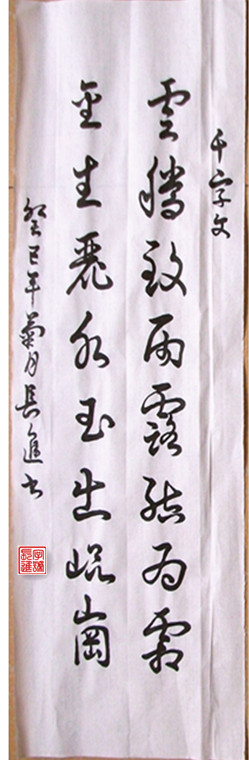 千字文
雲騰致雨露結為霜
金生麗水玉出崑崗
癸巳年菊月長進書